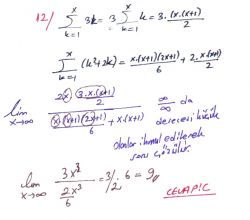 12/ \sum_{k=1}^{x} 3k = 3 \sum_{k=1}^{x} k = 3 \cdot \frac{x \cdot (x+1)}{2}
\sum_{k=1}^{x} (k^2+2k) = \frac{x \cdot (x+1)(2x+1)}{6} + \frac{2 \cdot x \cdot (x+1)}{2}
\lim_{x \to \infty} \frac{2x \cdot \frac{3 \cdot x \cdot (x+1)}{2}}{\frac{x \cdot (x+1)(2x+1)}{6} + x \cdot (x+1)} \frac{\infty}{\infty} da
derecesi küçük
olanlar ihmal edilerek
soru çözülür.
\lim_{x \to \infty} \frac{3x^3}{\frac{2x^3}{6}} = 3/2 \cdot 6 = 9
CEVAP: C